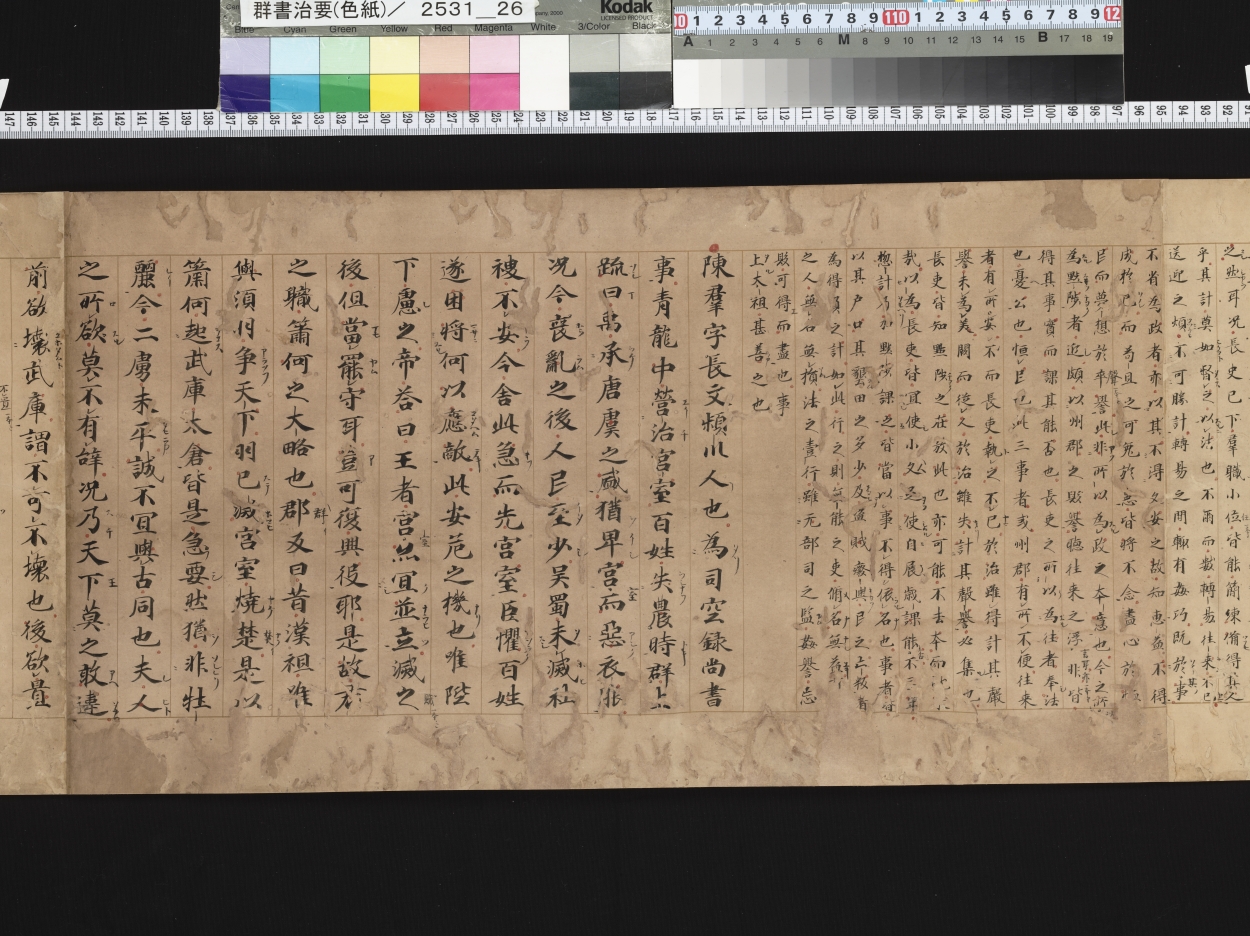 群書治要(色紙)／ 2531__26
Kodak
LICENSED PRODUCT
Blue Cyan Green Yellow Red Magenta White 3/Color Black
之然耳況長史已下羣職小位皆能簡練備得其人
乎其計莫如督之以法也不爾而數轉易往来不已
送迎之煩不可勝計轉易之間輙有姦巧既於事
不省為政者亦以其不得久安之故知惠益不得
成於已而苟且之可免於患皆将不念盡心於
民而夢想於聲譽此非所以為政之本意也今之所以
為黜陟者近頗以州郡之毀譽聽往来之浮言耳皆
得其事實而課其能否也長吏之所以為佳者奉法
也憂公也恤民也此三事者或州郡有所不便往来
者有所不安而長吏執之不已於治雖得計其聲
譽未為美闕而従人於治雖失計其聲譽必集也
長吏皆知黜陟之在於此也亦可能不去本而就末
哉以為長吏皆宜使小久足使自展歳課能不三年
惣計乃加黜陟課之皆當以事不得依名也事者皆
以其戸口其墾田之多少及盗賊發興民之亡叛者
為得負之計如此行之則無能之吏脩名無益
之人無名無損法之責行雖无部司之監姦譽忘
毀可得而盡也事
上太祖甚善之也
陳羣字長文潁川人也為司空録尚書
事青龍中營治宮室百姓失農時群上
疏曰禹承唐虞之盛猶卑宮而惡衣服
況今喪亂之後人民至少吴蜀未滅社
稷不安今舎此急而先宮室臣懼百姓
遂困将何以應敵此安危之機也唯陛
下慮之帝荅曰王者宮然宜並立滅之
後但當罷守耳豈可復興役耶是故君
之職簫何之大略也郡又曰昔漢祖唯
與湏羽争天下羽已滅宮室燒楚是以
簫何起武庫太倉皆是急要然猶非壮
麗今二虜未平誠不宜與古同也夫人
之所欲莫不有辞況乃天下莫之敢違
前欲壊武庫謂不可不壊也後欲置